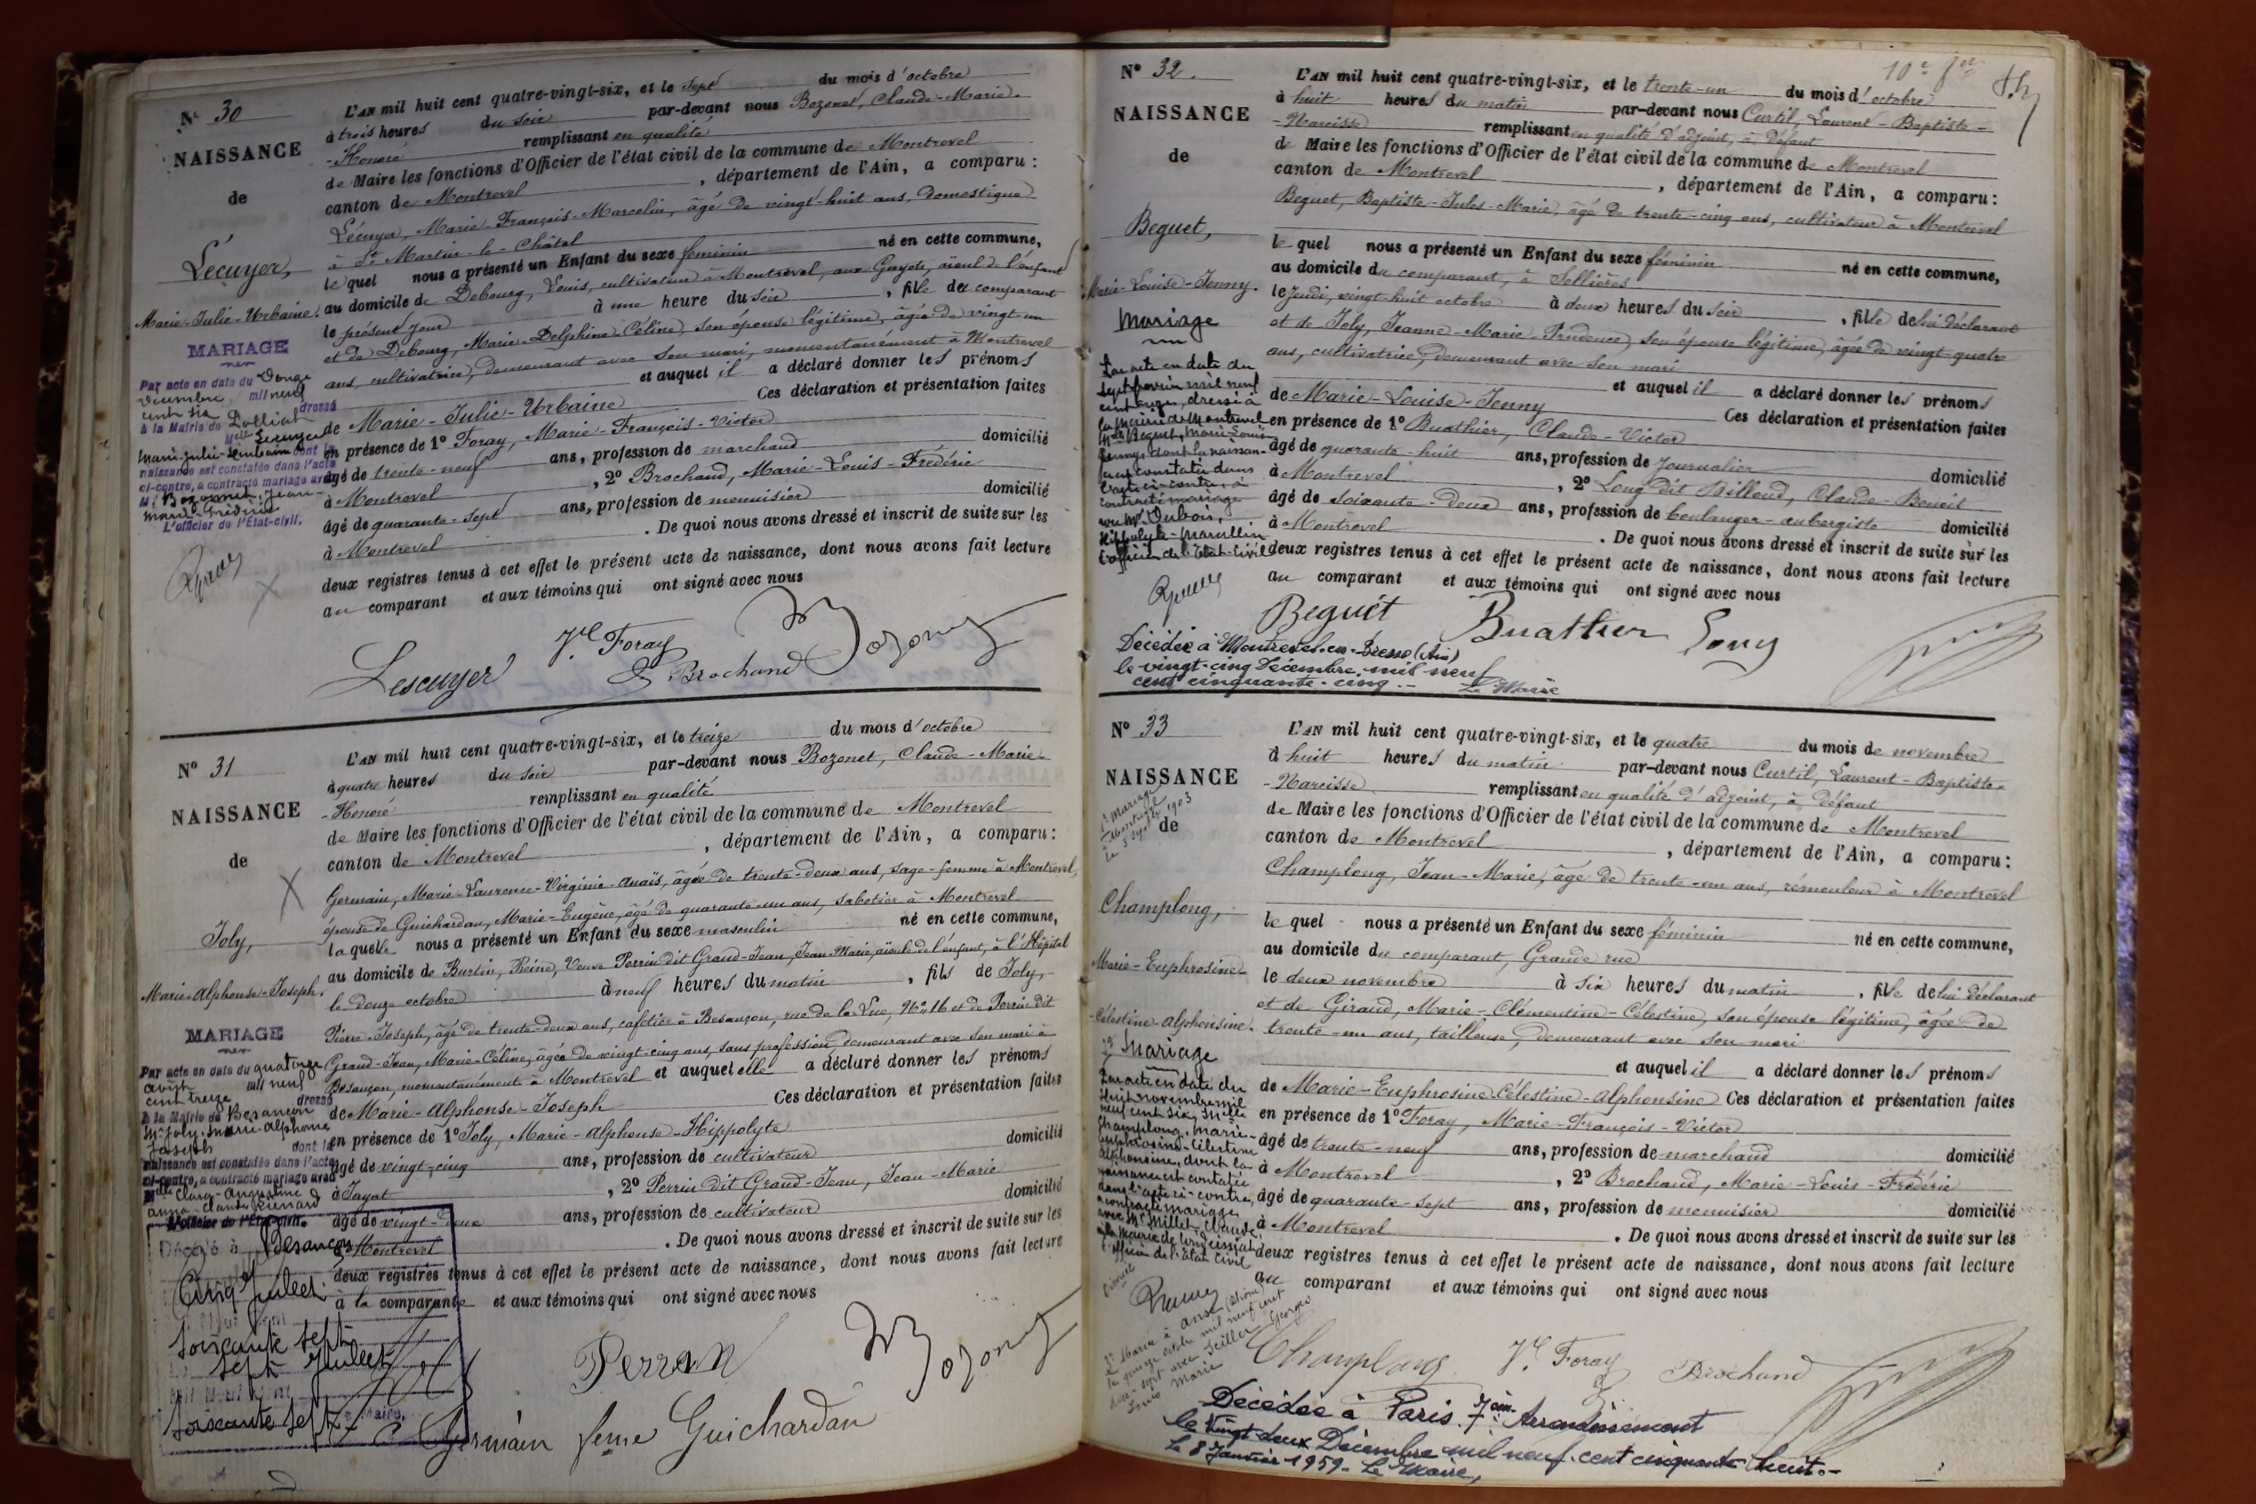 N° 30
NAISSANCE
de
Lécuyer,
Marie-Julie-Urbaine.
MARIAGE
Par acte en date du Douze
décembre mil neuf
cent six dressé
à la Mairie de
Melle Lecuyer
Marie-Julie-Urbaine dont la
naissance est constatée dans l'acte
ci-contre, a contracté mariage avec
M. Bozonnet, Jean-
Marie-Frédéric
L'officier de l'Etat-civil.
L'AN mil huit cent quatre-vingt-six, et le sept du mois d'octobre
à trois heures du soir par-devant nous Bozonet, Claude-Marie-
-Honoré remplissant en qualité
de Maire les fonctions d'Officier de l'état civil de la commune de Montrevel
canton de Montrevel, département de l'Ain, a comparu:
Lécuyer, Marie-François-Marcelin, âgé de vingt-huit ans, domestique
à St Martin-le-Châtel
le quel nous a présenté un Enfant du sexe féminin né en cette commune,
au domicile de Debourg, Louis, cultivateur à Montrevel, aux Gayots, aïeul de l'enfant
le présent jour à une heure du soir, fille du comparant
et de Debourg, Marie-Delphine-Céline, son épouse légitime, âgée de vingt-un
ans, cultivatrice, demeurant avec son mari, momentanément à Montrevel
et auquel il a déclaré donner les prénoms
de Marie-Julie-Urbaine Ces déclaration et présentation faites
en présence de 1° Foray, Marie-François-Victor
âgé de trente-neuf ans, profession de marchand domicilié
à Montrevel, 2° Brochand, Marie-Louis-Frédéric
âgé de quarante-sept ans, profession de menuisier domicilié
à Montrevel. De quoi nous avons dressé et inscrit de suite sur les
deux registres tenus à cet effet le présent acte de naissance, dont nous avons fait lecture
au comparant et aux témoins qui ont signé avec nous
Lescuyer Foray Brochand Bozonet
N° 31
NAISSANCE
de
Joly,
Marie-Alphonse-Joseph.
MARIAGE
Par acte en date du quatorze
avril mil neuf
cent treize dressé
à la Mairie de Besançon
Mr Joly, Marie-Alphonse
Joseph dont la
naissance est constatée dans l'acte
ci-contre, a contracté mariage avec
Melle Clerc-Augustine
L'officier de l'Etat-civil.
Décédé à Besançon
Cinq Juillet
soixante sept
sept Juillet
soixante sept
Le Maire,
L'AN mil huit cent quatre-vingt-six, et le treize du mois d'octobre
à quatre heures du soir par-devant nous Bozonet, Claude-Marie-
-Honoré remplissant en qualité
de Maire les fonctions d'Officier de l'état civil de la commune de Montrevel
canton de Montrevel, département de l'Ain, a comparu:
Germain, Marie-Laurence-Virginie-Anaïs, âgée de trente-deux ans, sage-femme à Montrevel,
épouse de Guichardan, Marie-Eugène, âgé de quarante-un ans, sabotier à Montrevel
la quelle nous a présenté un Enfant du sexe masculin né en cette commune,
au domicile de Burtin, Reine, Veuve Perrin dit Grand-Jean, Jean-Marie, aïeule de l'enfant, à l'Hôpital
le douze octobre à neuf heures du matin, fils de Joly,
Pierre-Joseph, âgé de trente-deux ans, cafetier à Besançon, rue de la Lue, N° 16 et de Perrin dit
Grand-Jean, Marie-Céline, âgée de vingt-cinq ans, sans profession demeurant avec son mari à
Besançon, momentanément à Montrevel et auquel elle a déclaré donner les prénoms
de Marie-Alphonse-Joseph Ces déclaration et présentation faites
en présence de 1° Joly, Marie-Alphonse-Hippolyte
âgé de vingt-cinq ans, profession de cultivateur domicilié
à Jayat, 2° Perrin dit Grand-Jean, Jean-Marie
âgé de vingt-deux ans, profession de cultivateur domicilié
à Montrevel. De quoi nous avons dressé et inscrit de suite sur les
deux registres tenus à cet effet le présent acte de naissance, dont nous avons fait lecture
à la comparante et aux témoins qui ont signé avec nous
Perrin Bozonet
Germain feme Guichardan
N° 32.
NAISSANCE
de
Beguet,
Marie-Louise-Jenny.
Mariage
Par acte en date du
sept février mil neuf
cent onze, dressé à
la Mairie de Montrevel
Melle Beguet, Marie-Louise
Jenny, dont la naissan-
ce est constatée dans
l'acte ci-contre, a
contracté mariage
avec Mr Dubois,
Hippolyte-Marcellin
L'officier de l'Etat-Civil
10e
L'AN mil huit cent quatre-vingt-six, et le trente-un du mois d'octobre
à huit heures du matin par-devant nous Curtil, Laurent-Baptiste-
-Narcisse remplissant en qualité d'adjoint, à défaut
de Maire les fonctions d'Officier de l'état civil de la commune de Montrevel
canton de Montrevel, département de l'Ain, a comparu:
Beguet, Baptiste-Jules-Marie, âgé de trente-cinq ans, cultivateur à Montrevel
le quel nous a présenté un Enfant du sexe féminin né en cette commune,
au domicile du comparant, à Sellières
le Jeudi, vingt-huit octobre à deux heures du soir, fille de lui déclarant
et de Joly, Jeanne-Marie-Prudence, son épouse légitime, âgée de vingt-quatre
ans, cultivatrice, demeurant avec son mari
et auquel il a déclaré donner les prénoms
de Marie-Louise-Jenny Ces déclaration et présentation faites
en présence de 1° Buathier, Claude-Victor
âgé de quarante-huit ans, profession de journalier domicilié
à Montrevel, 2° Long dit Billoud, Claude-Benoit
âgé de soixante-deux ans, profession de boulanger-aubergiste domicilié
à Montrevel. De quoi nous avons dressé et inscrit de suite sur les
deux registres tenus à cet effet le présent acte de naissance, dont nous avons fait lecture
au comparant et aux témoins qui ont signé avec nous
Beguet Buathier Long
Décédée à Montrevel-en-Bresse (Ain)
le vingt-cinq Décembre mil neuf
cent cinquante-cinq.- Le Maire
N° 33
NAISSANCE
de
Champlong,
Marie-Euphrosine-
-Célestine-Alphonsine.
2e Mariage
Par acte en date du
huit novembre mil
neuf cent six, Melle
Champlong, Marie-
Euphrosine-Célestine
Alphonsine, dont la
naissance est constatée
dans l'acte ci-contre,
a contracté mariage
avec Mr Millet, Claude,
L'officier de l'Etat Civil
L'AN mil huit cent quatre-vingt-six, et le quatre du mois de novembre
à huit heures du matin par-devant nous Curtil, Laurent-Baptiste-
-Narcisse remplissant en qualité d'adjoint, à défaut
de Maire les fonctions d'Officier de l'état civil de la commune de Montrevel
canton de Montrevel, département de l'Ain, a comparu:
Champlong, Jean-Marie, âgé de trente-un ans, rémouleur à Montrevel
le quel nous a présenté un Enfant du sexe féminin né en cette commune,
au domicile du comparant, Grande rue
le deux novembre à six heures du matin, fille de lui déclarant
et de Giraud, Marie-Clémentine-Célestine, son épouse légitime, âgée de
trente-un ans, tailleuse, demeurant avec son mari
et auquel il a déclaré donner les prénoms
de Marie-Euphrosine-Célestine-Alphonsine Ces déclaration et présentation faites
en présence de 1° Foray, Marie-François-Victor
âgé de trente-neuf ans, profession de marchand domicilié
à Montrevel, 2° Brochand, Marie-Louis-Frédéric
âgé de quarante-sept ans, profession de menuisier domicilié
à Montrevel. De quoi nous avons dressé et inscrit de suite sur les
deux registres tenus à cet effet le présent acte de naissance, dont nous avons fait lecture
au comparant et aux témoins qui ont signé avec nous
Champlong Foray Brochand
Décédée à Paris 7ème Arrondissement
le vingt deux Décembre mil neuf cent cinquante huit.-
Le 8 Janvier 1959. Le Maire,